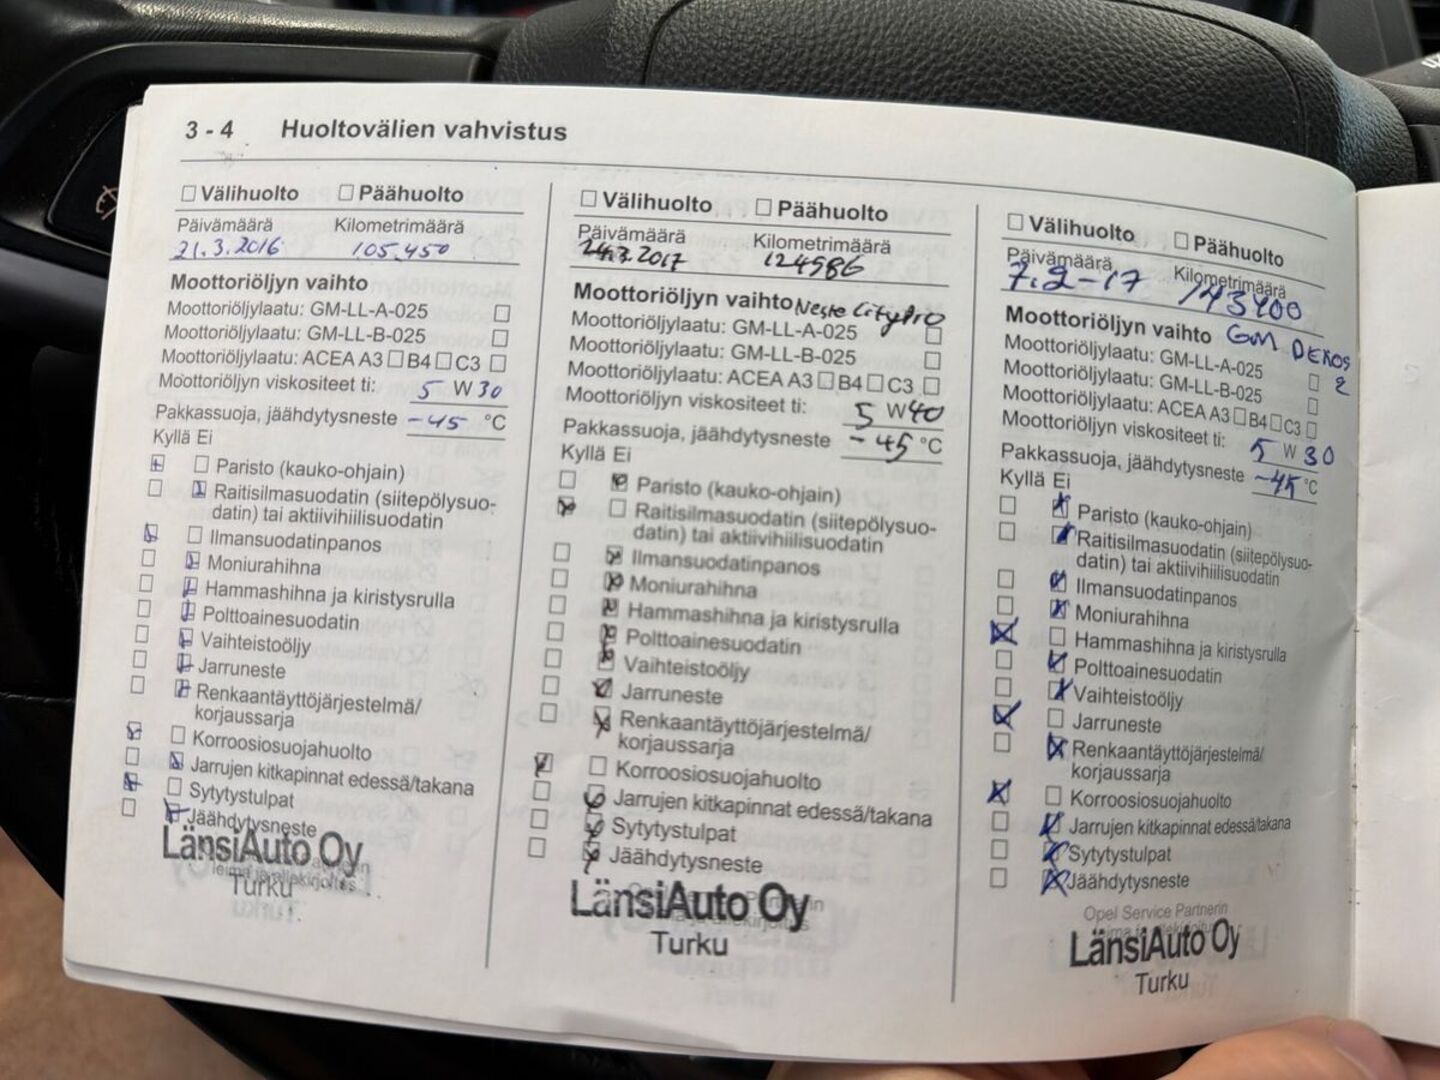 3 - 4 Huoltovälien vahvistus
☐ Välihuolto ☐ Päähuolto
Päivämäärä Kilometrimäärä
21.3.2016 105.450
Moottoriöljyn vaihto
Moottoriöljylaatu: GM-LL-A-025 ☐
Moottoriöljylaatu: GM-LL-B-025 ☐
Moottoriöljylaatu: ACEA A3 ☐ B4 ☐ C3 ☐
Moottoriöljyn viskositeet ti: 5 W 30
Pakkassuoja, jäähdytysneste -45 °C
Kyllä Ei
Paristo (kauko-ohjain)
Raitisilmasuodatin (siitepölysuo-
datin) tai aktiivihiilisuodatin
Ilmansuodatinpanos
Moniurahihna
Hammashihna ja kiristysrulla
Polttoainesuodatin
Vaihteistoöljy
Jarruneste
Renkaantäyttöjärjestelmä/
korjaussarja
Korroosiosuojahuolto
Jarrujen kitkapinnat edessä/takana
Sytytystulpat
Jäähdytysneste
LänsiAuto Oy
leima ja allekirjoitus
Turku
☐ Välihuolto ☐ Päähuolto
Päivämäärä Kilometrimäärä
24.3.2017 124986
Moottoriöljyn vaihto Neste City Pro
Moottoriöljylaatu: GM-LL-A-025 ☐
Moottoriöljylaatu: GM-LL-B-025 ☐
Moottoriöljylaatu: ACEA A3 ☐ B4 ☐ C3 ☐
Moottoriöljyn viskositeet ti: 5 W 40
Pakkassuoja, jäähdytysneste -45 °C
Kyllä Ei
Paristo (kauko-ohjain)
Raitisilmasuodatin (siitepölysuo-
datin) tai aktiivihiilisuodatin
Ilmansuodatinpanos
Moniurahihna
Hammashihna ja kiristysrulla
Polttoainesuodatin
Vaihteistoöljy
Jarruneste
Renkaantäyttöjärjestelmä/
korjaussarja
Korroosiosuojahuolto
Jarrujen kitkapinnat edessä/takana
Sytytystulpat
Jäähdytysneste
LänsiAuto Oy
Turku
☐ Välihuolto ☐ Päähuolto
Päivämäärä Kilometrimäärä
7.2-17 143400
Moottoriöljyn vaihto GM DEXOS 2
Moottoriöljylaatu: GM-LL-A-025 ☐
Moottoriöljylaatu: GM-LL-B-025 ☐
Moottoriöljylaatu: ACEA A3 ☐ B4 ☐ C3 ☐
Moottoriöljyn viskositeet ti: 5 W 30
Pakkassuoja, jäähdytysneste -45 °C
Kyllä Ei
Paristo (kauko-ohjain)
Raitisilmasuodatin (siitepölysuo-
datin) tai aktiivihiilisuodatin
Ilmansuodatinpanos
Moniurahihna
Hammashihna ja kiristysrulla
Polttoainesuodatin
Vaihteistoöljy
Jarruneste
Renkaantäyttöjärjestelmä/
korjaussarja
Korroosiosuojahuolto
Jarrujen kitkapinnat edessä/takana
Sytytystulpat
Jäähdytysneste
Opel Service Partnerin
leima ja allekirjoitus
LänsiAuto Oy
Turku